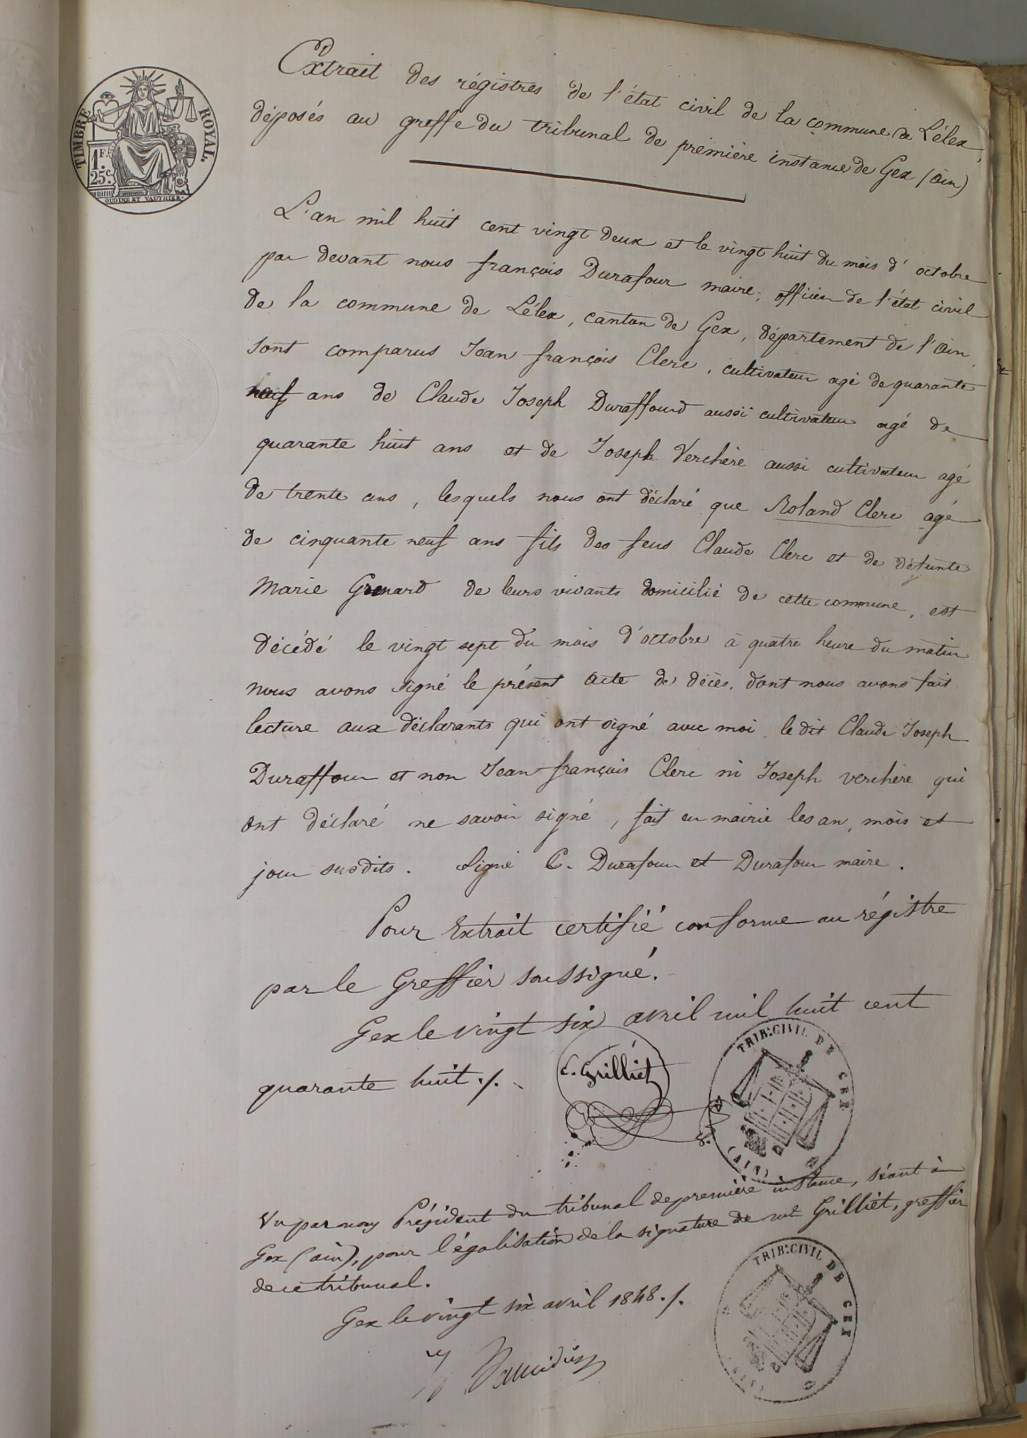 TIMBRE ROYAL.
1 Fr.
25 c.
Extrait des régistres de l'état civil de la commune de Lélex,
déposés au greffe du tribunal de première instance de Gex (ain)
L'an mil huit cent vingt deux et le vingt huit du mois d'octobre
par devant nous françois Durafour maire, officier de l'état civil
de la commune de Lélex, canton de Gex, département de l'ain
sont comparus Jean françois Clerc, cultivateur agé de quarante
neuf ans de Claude Joseph Duraffourd aussi cultivateur agé de
quarante huit ans et de Joseph Verchère aussi cultivateur agé
de trente ans, lesquels nous ont déclaré que Roland Clerc agé
de cinquante neuf ans fils des feus Claude Clerc et de défunte
Marie Grenard de leurs vivants domicilié de cette commune, est
décédé le vingt sept du mois d'octobre à quatre heure du matin
nous avons signé le présent acte de décès, dont nous avons fait
lecture aux déclarants qui ont signé avec moi le dit Claude Joseph
Duraffour et non Jean françois Clerc ni Joseph verchère qui
ont déclaré ne savoir signé, fait en mairie les an, mois et
jour susdits. Signé C. Durafour et Durafour maire.
Pour Extrait certifié conforme au régistre
par le Greffier soussigné.
Gex le vingt six avril mil huit cent
quarante huit ./.
L. Grilliet
TRIB: CIVIL DE GEX
(AIN)
Vu par nous Président du tribunal de première instance, séant à
Gex (ain), pour l'égalisation de la signature de Me Grilliet, greffier
de ce tribunal.
Gex le vingt six avril 1848 ./.
TRIB: CIVIL DE GEX
(AIN)